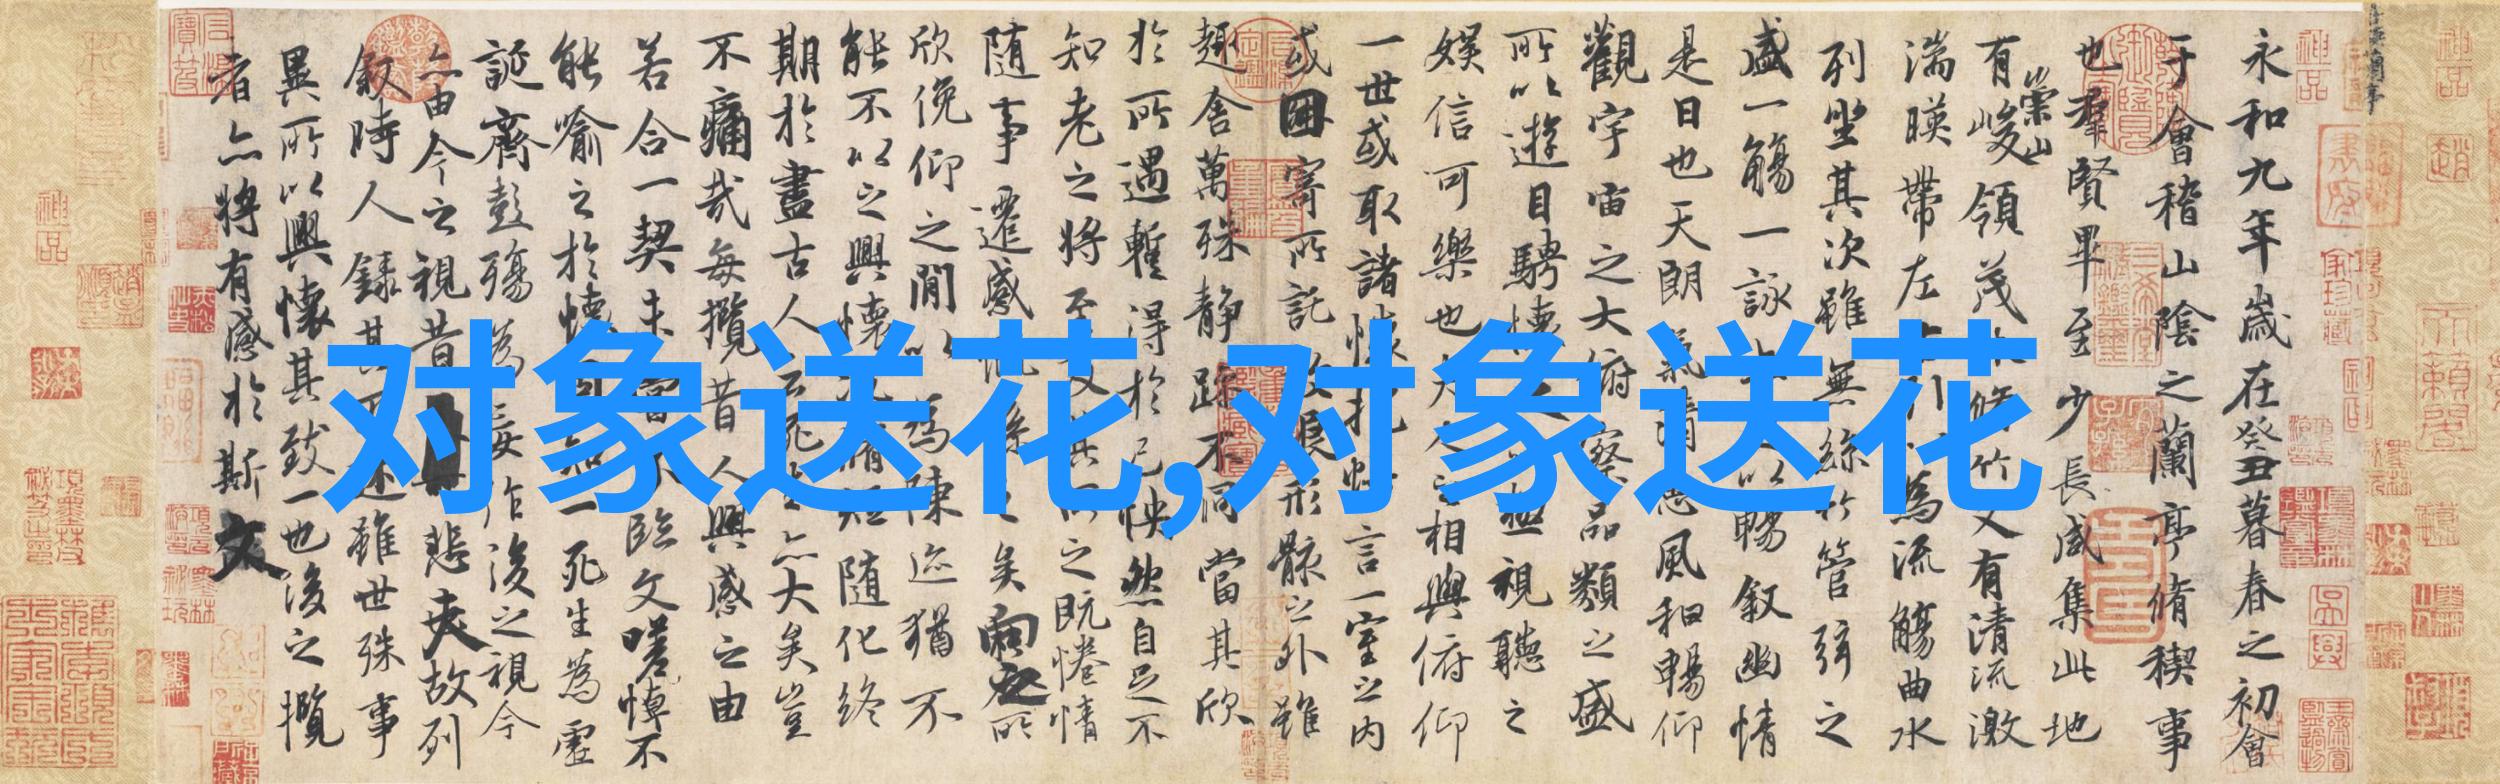 永和九年歲在癸丑暮春之初會
于會稽山陰之蘭亭脩稧事
也羣賢畢至少長咸集此地
有崇山峻領茂林脩竹又有清流激
湍暎帶左右引以為流觴曲水
列坐其次雖無絲竹管弦之
盛一觴一詠亦足以暢叙幽情
是日也天朗氣清惠風和暢仰
觀宇宙之大俯察品類之盛
所以遊目騁懷足以極視聽之
娛信可樂也夫人之相與俯仰
一世或取諸懷抱悟言一室之內
或因寄所託放浪形骸之外雖
趣舍萬殊静躁不同當其欣
於所遇暫得於己怏然自足不
知老之將至及其所之既惓情
随事遷感慨係之矣向之所
欣俛仰之閒以為陳迹猶不
能不以之興懷況脩短随化終
期於盡古人云死生亦大矣豈
不痛哉每攬昔人興感之由
若合一契未嘗不臨文嗟悼不
能喻之於懷固知一死生為虛
誕齊彭殤為妄作後之視今
亦由今之視昔悲夫故列
叙時人錄其所述雖世殊事
異所以興懷其致一也後之攬
者亦將有感於斯文
对象送花,对象送花